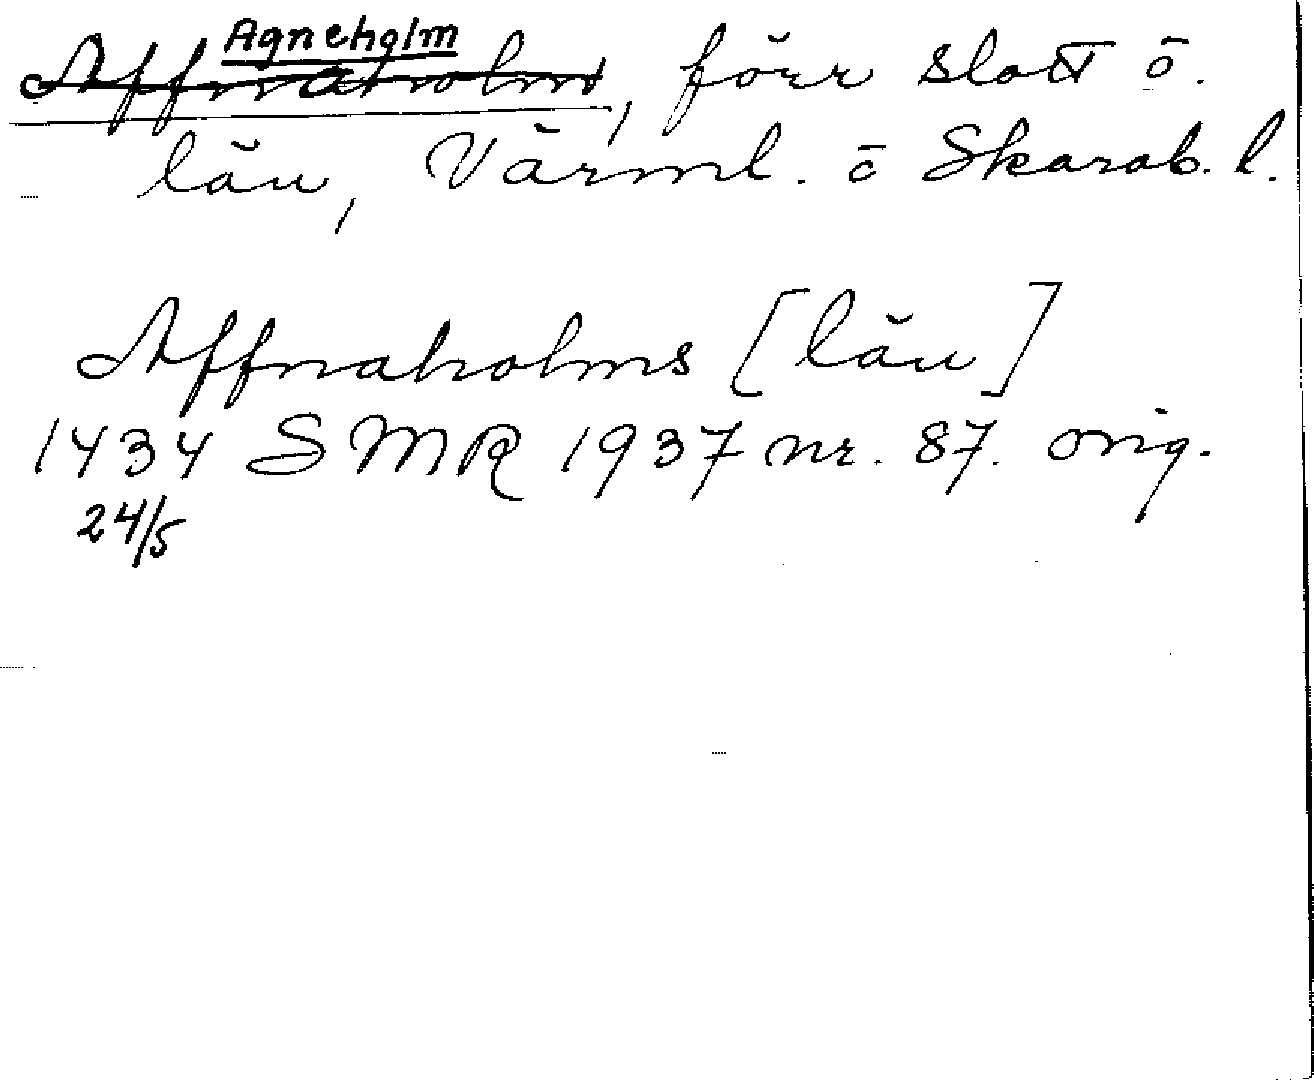 Agneholm
Affnaholm, förr slott o.
län, Värml. o Skarab. l.
Affnaholms [län]
1434 SMR 1937 nr. 87. orig.
24/5